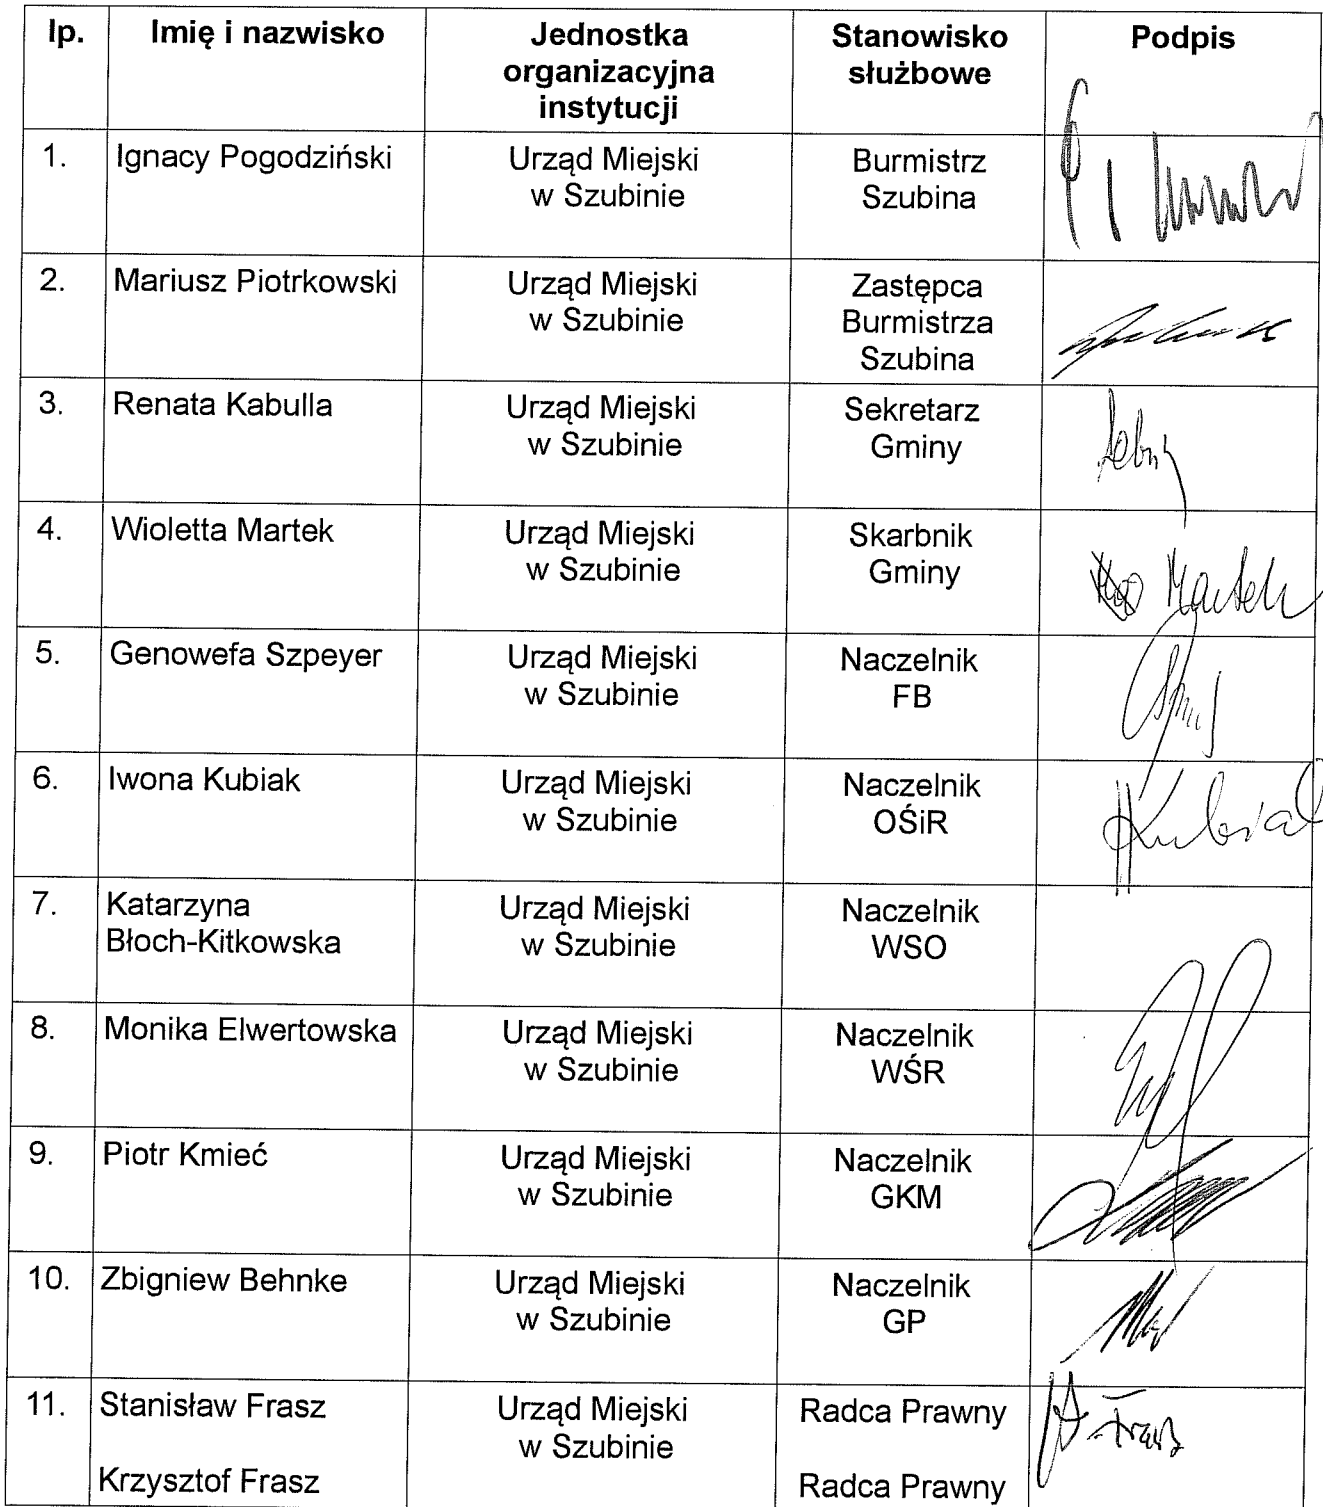 lp.
Imię i nazwisko
Jednostka
organizacyjna
instytucji
Stanowisko
służbowe
Podpis
1.
Ignacy Pogodziński
Urząd Miejski
w Szubinie
Burmistrz
Szubina
2.
Mariusz Piotrkowski
Urząd Miejski
w Szubinie
Zastępca
Burmistrza
Szubina
3.
Renata Kabulla
Urząd Miejski
w Szubinie
Sekretarz
Gminy
4.
Wioletta Martek
Urząd Miejski
w Szubinie
Skarbnik
Gminy
Martek
5.
Genowefa Szpeyer
Urząd Miejski
w Szubinie
Naczelnik
FB
6.
Iwona Kubiak
Urząd Miejski
w Szubinie
Naczelnik
OŚiR
Kubiak
7.
Katarzyna
Błoch-Kitkowska
Urząd Miejski
w Szubinie
Naczelnik
WSO
8.
Monika Elwertowska
Urząd Miejski
w Szubinie
Naczelnik
WŚR
9.
Piotr Kmieć
Urząd Miejski
w Szubinie
Naczelnik
GKM
10.
Zbigniew Behnke
Urząd Miejski
w Szubinie
Naczelnik
GP
11.
Stanisław Frasz
Krzysztof Frasz
Urząd Miejski
w Szubinie
Radca Prawny
Radca Prawny
Frasz